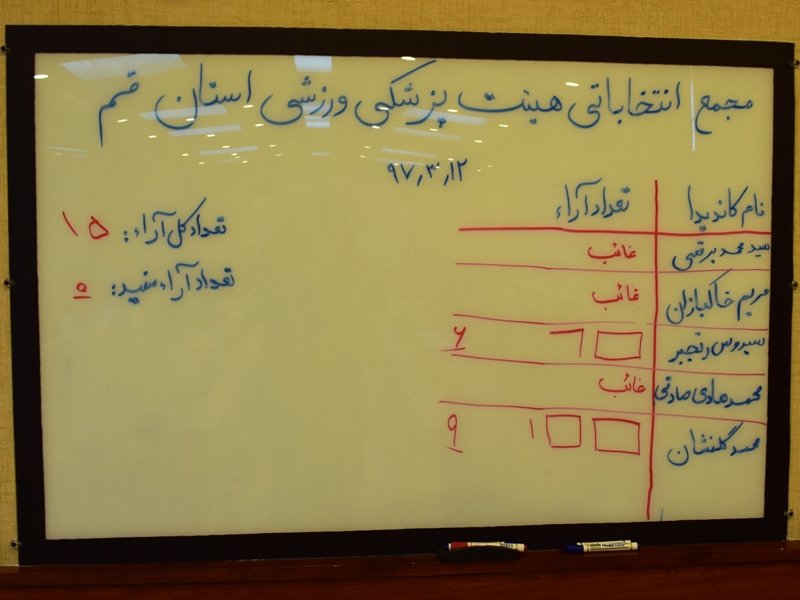 مجمع انتخاباتی هیئت پزشکی ورزشی استان قم
۹۷٫۳٫۱۲
نام کاندیدا تعداد آراء
سید محمد برقعی غائب
مریم خاکبازان غائب
سیروس رنجبر ۶
محمدهادی صادقی غائب
محمد گلفشان ۹
تعداد کل آراء: ۱۵
تعداد آراء سفید: ۰